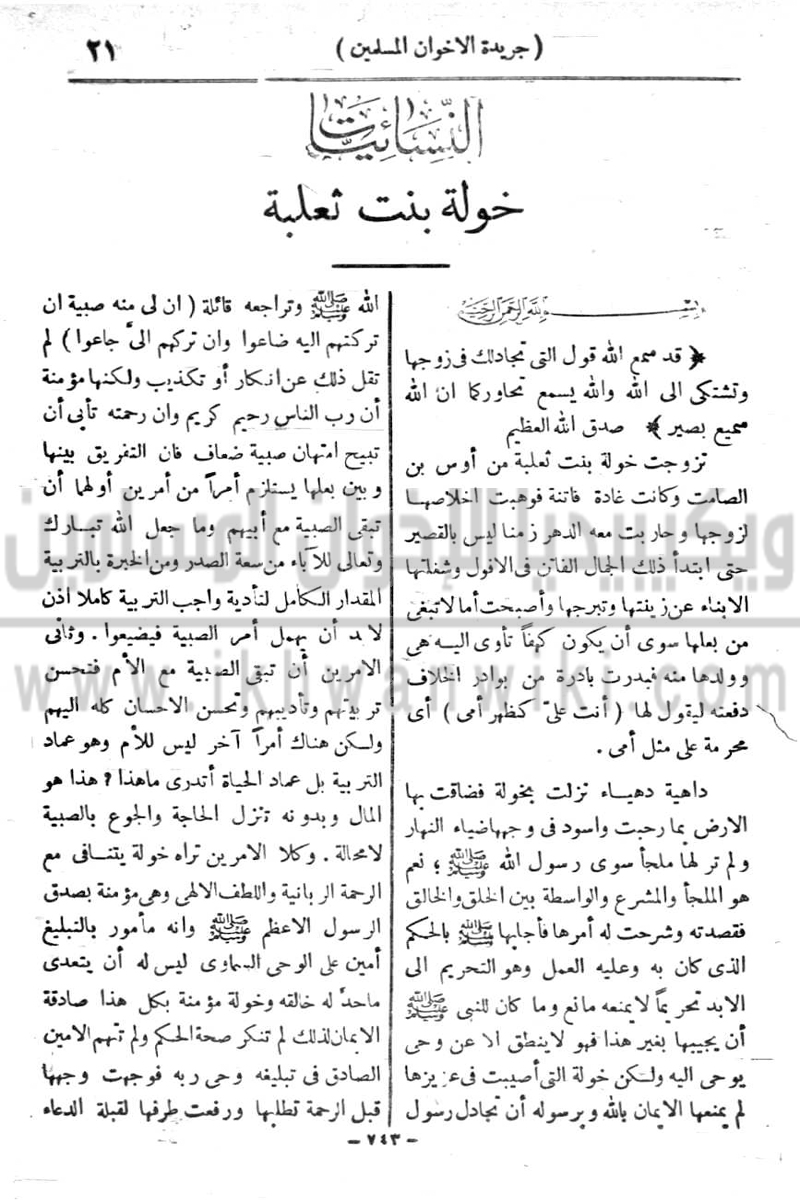 ( جريدة الاخوان المسلمين )
٢١
النسائيات
خولة بنت ثعلبة
بسم الله الرحمن الرحيم
﴿ قد سمع الله قول التى تجادلك فى زوجها
وتشتكى الى الله والله يسمع تحاوركما ان الله
سميع بصير ﴾ صدق الله العظيم
تزوجت خولة بنت ثعلبة من أوس بن
الصامت وكانت غادة فاتنة فوهبت اخلاصها
لزوجها وحاربت معه الدهر زمنا ليس بالقصير
حتى ابتدأ ذلك الجمال الفاتن فى الافول وشغلتها
الابناء عن زينتها وتبرجها وأصبحت أما لا تبغى
من بعلها سوى أن يكون كهفاً تأوى اليه هى
وولدها منه فبدرت بادرة من بوادر الخلاف
دفعته ليقول لها ( أنت علىّ كظهر أمى ) أى
محرمة على مثل أمى .
داهية دهياء نزلت بخولة فضاقت بها
الارض بما رحبت واسود فى وجهها ضياء النهار
ولم تر لها ملجأ سوى رسول الله ﷺ ؛ نعم
هو الملجأ والمشرع والواسطة بين الخلق والخالق
فقصدته وشرحت له أمرها فأجابها ﷺ بالحكم
الذى كان به وعليه العمل وهو التحريم الى
الابد تحريماً لا يمنعه مانع وما كان للنبى ﷺ
أن يجيبها بغير هذا فهو لا ينطق الا عن وحى
يوحى اليه ولكن خولة التى أصيبت فى عزيزها
لم يمنعها الايمان بالله وبرسوله أن تجادل رسول
الله ﷺ وتراجعه قائلة ( ان لى منه صبية ان
تركتهم اليه ضاعوا وان تركهم الىّ جاعوا ) لم
تقل ذلك عن انكار أو تكذيب ولكنها مؤمنة
أن رب الناس رحيم كريم وان رحمته تأبى أن
تبيح امتهان صبية ضعاف فان التفريق بينها
وبين بعلها يستلزم أمراً من أمرين أولهما أن
تبقى الصبية مع أبيهم وما جعل الله تبارك
وتعالى للآباء من سعة الصدر ومن الخبرة بالتربية
المقدار الكامل لتأدية واجب التربية كاملا اذن
لابد أن يهمل أمر الصبية فيضيعوا . وثانى
الامرين أن تبقى الصبية مع الأم فتحسن
تربيتهم وتأديبهم وتحسن الاحسان كله اليهم
ولكن هناك أمراً آخر ليس للأم وهو عماد
التربية بل عماد الحياة أتدرى ماهذا ؟ هذا هو
المال وبدونه تنزل الحاجة والجوع بالصبية
لامحالة . وكلا الامرين تراه خولة يتنافى مع
الرحمة الربانية واللطف الالهى وهى مؤمنة بصدق
الرسول الاعظم ﷺ وانه مأمور بالتبليغ
أمين على الوحى السماوى ليس له أن يتعدى
ماحدّ له خالقه وخولة مؤمنة بكل هذا صادقة
الايمان لذلك لم تنكر صحة الحكم ولم تتهم الامين
الصادق فى تبليغه وحى ربه فوجهت وجهها
قبل الرحمة تطلبها ورفعت طرفها لقبلة الدعاء
- ٧٤٣ -
ويكيبيديا الإخوان المسلمين
www.ikhwanwiki.com